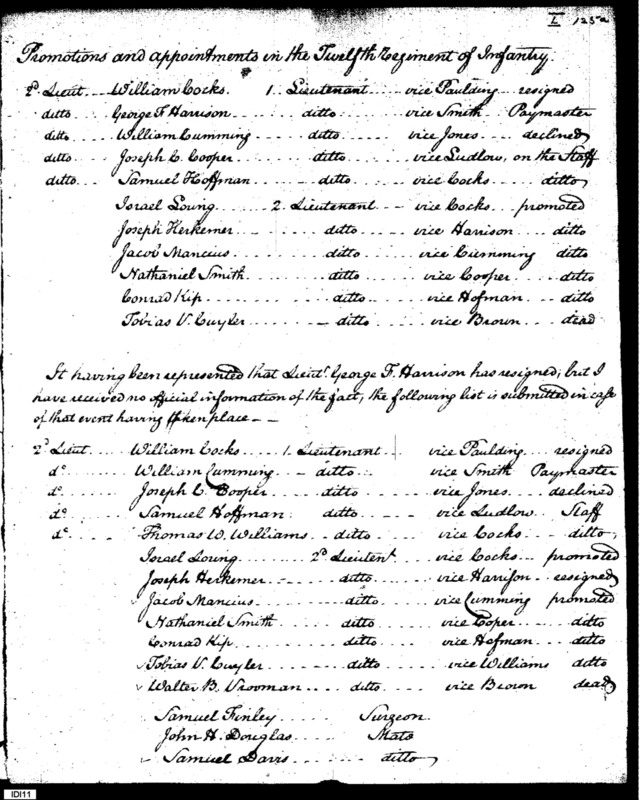 L 125a
Promotions and appointments in the Twelfth Regiment of Infantry.
2d Lieut. William Cocks. 1. Lieutenant vice Paulding resigned
ditto George F. Harrison ditto vice Smith Paymaster
ditto William Cumming ditto vice Jones declined
ditto Joseph C. Cooper ditto vice Ludlow, on the Staff
ditto Samuel Hoffman ditto vice Cocks ditto
Israel Loung 2. Lieutenant vice Cocks promoted
Joseph Herkemer ditto vice Harrison ditto
Jacob Mancius ditto vice Cumming ditto
Nathaniel Smith ditto vice Cooper ditto
Conrad Kip ditto vice Hofman ditto
Tobias V. Cuyler ditto vice Brown dead
It having been represented that Lieut. George F. Harrison has resigned; but I
have received no official information of the fact, the following list is submitted in case
of that event having taken place
2d Lieut William Cocks 1. Lieutenant vice Paulding resigned
do William Cumming ditto vice Smith Paymaster
do Joseph C. Cooper ditto vice Jones declined
do Samuel Hoffman ditto vice Ludlow Staff
do Thomas W. Williams ditto vice Cocks ditto
Israel Loung 2d Lieutent vice Cocks promoted
Joseph Herkemer ditto vice Harrison resigned
Jacob Mancius ditto vice Cumming promoted
Nathaniel Smith ditto vice Coper ditto
Conrad Kip ditto vice Hofman ditto
Tobias V. Cuyler ditto vice Williams ditto
Walter B. Vrooman ditto vice Brown dead
Samuel Finley Surgeon
John H. Douglas Mate
Samuel Davis ditto
IDI11